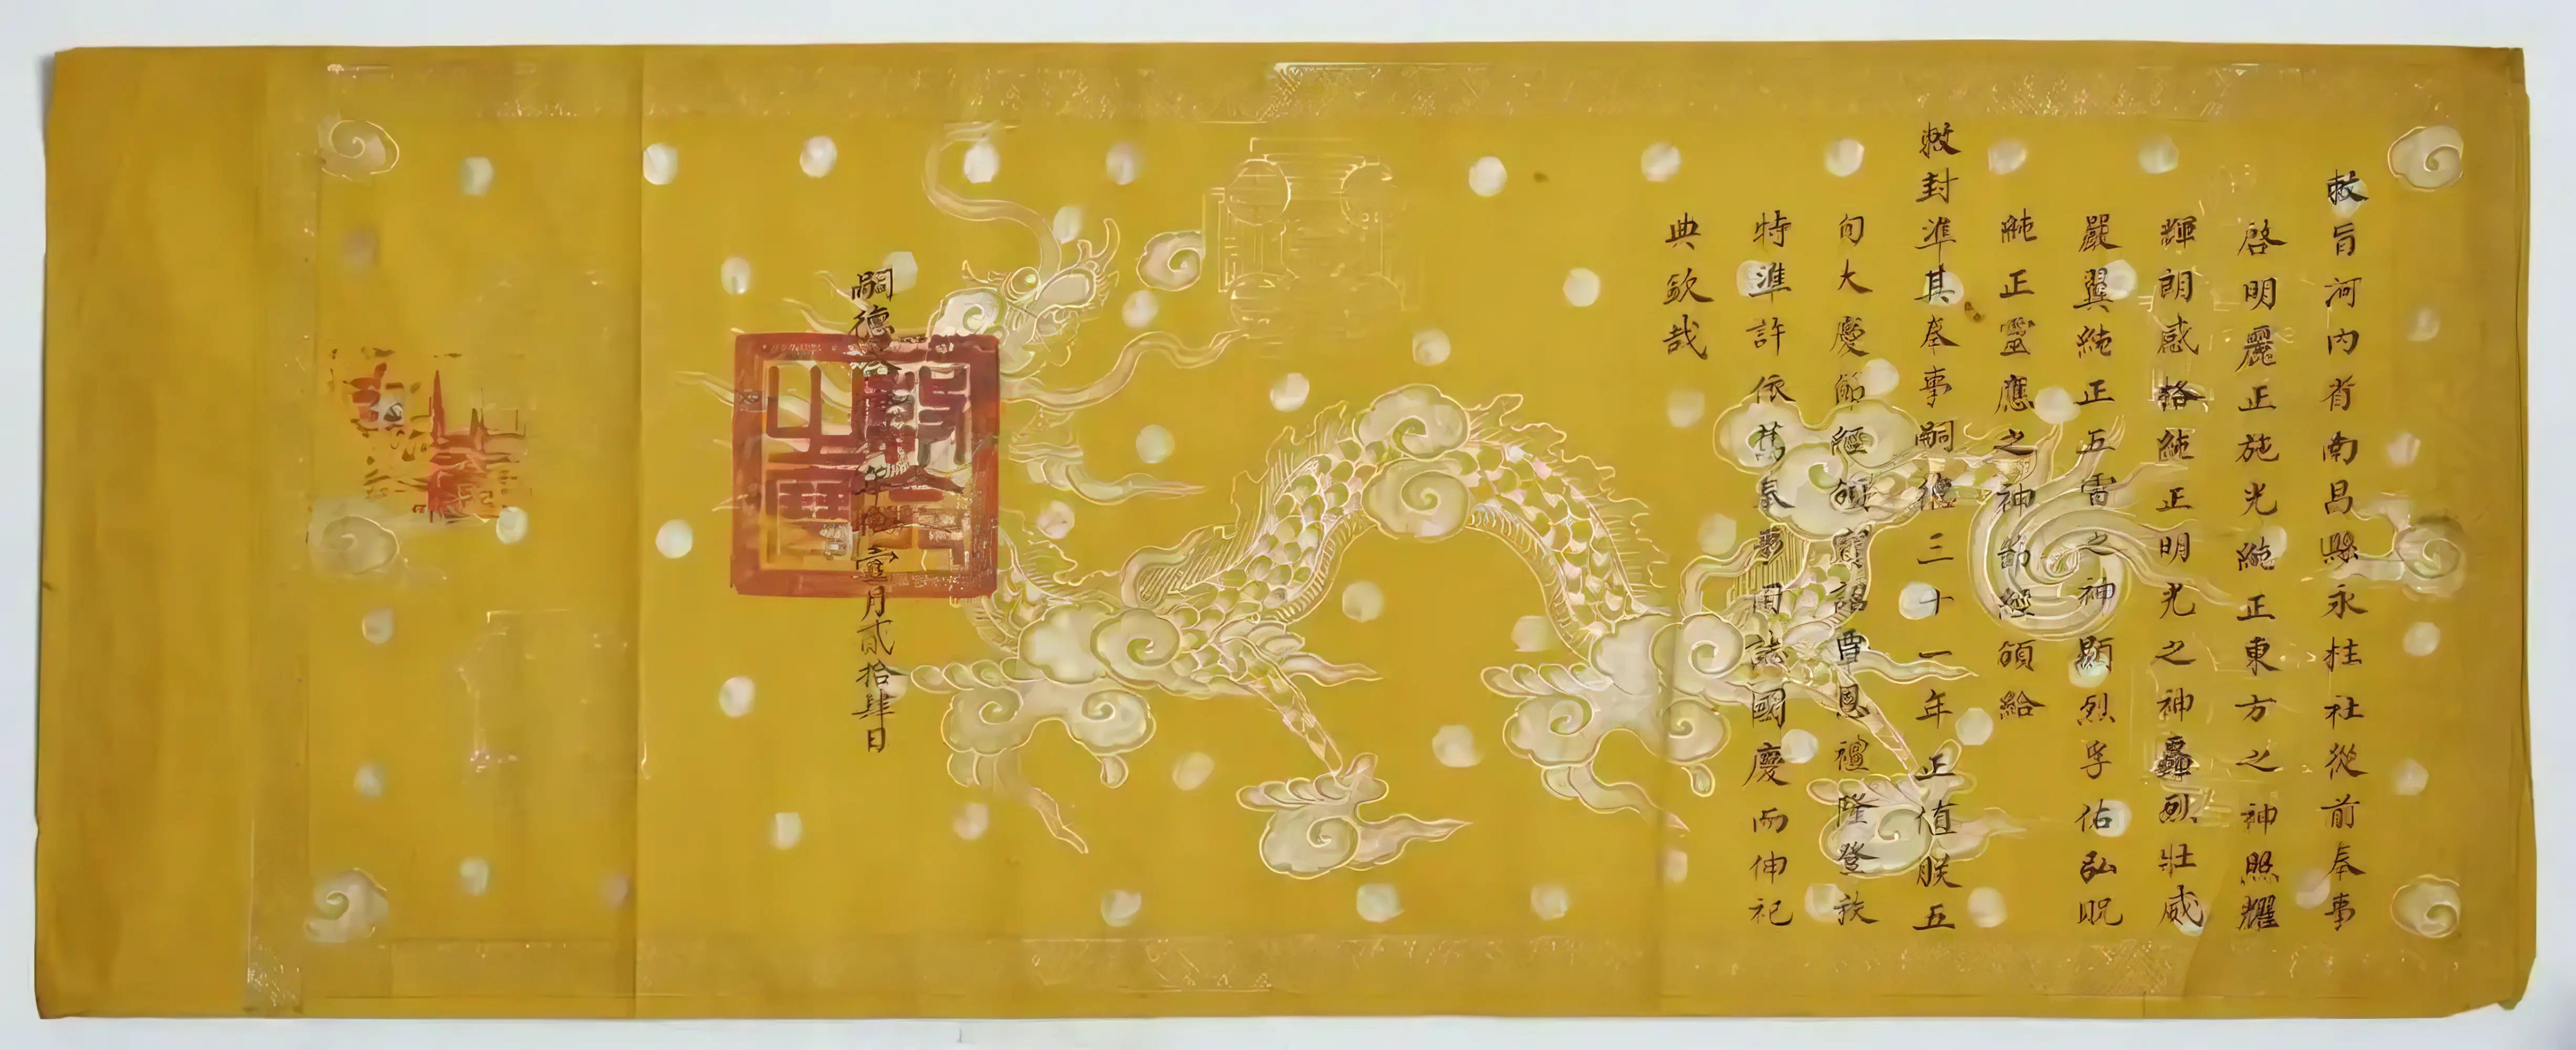 敕旨河内省南昌縣永柱社從前奉事
啓明麗正施光純正東方之神照耀
輝朗感格純正明光之神轟烈壯威
嚴翼純正五雷之神顯烈孚佑弘貺
純正靈應之神節經頒給
敕封準其奉事嗣德三十一年正值朕五
旬大慶節經頒寶詔覃恩禮隆登秩
特準許依舊奉事用誌國慶而伸祀
典欽哉
嗣德 年 壹月貳拾肆日
敕命之寶